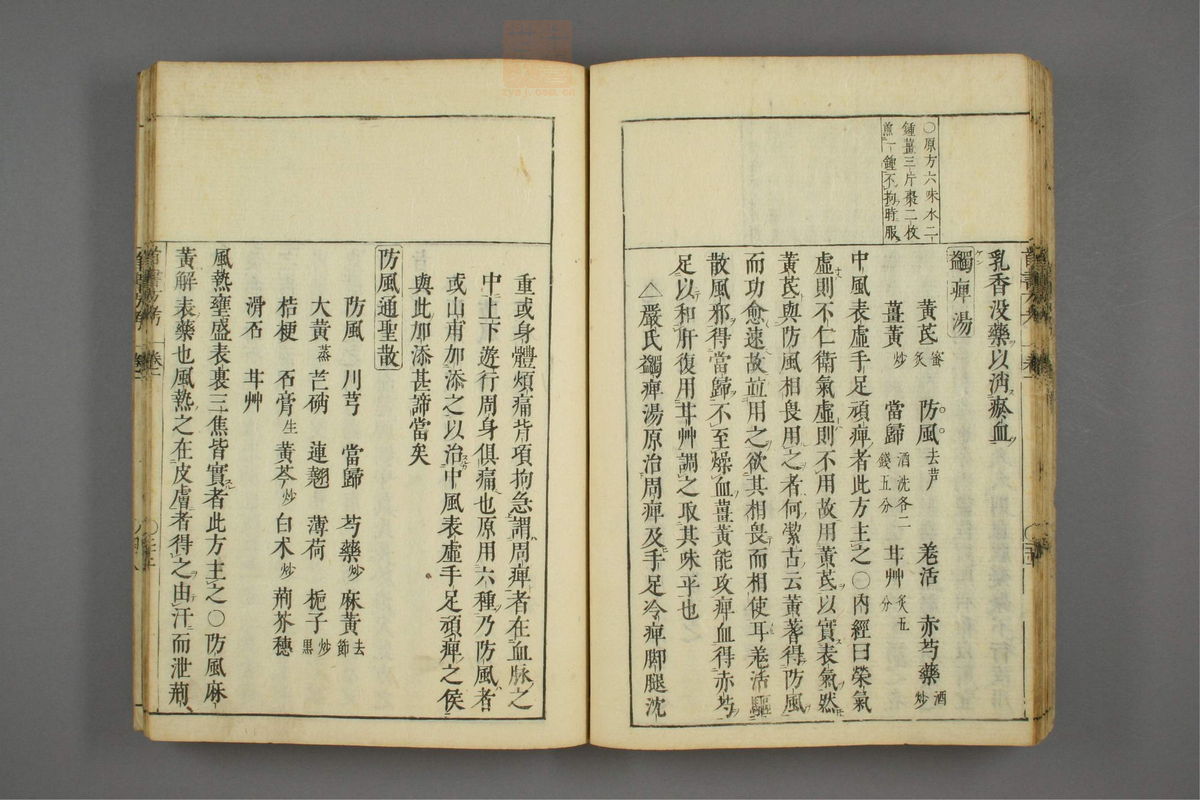 乳香没藥以消瘀血
蠲痺湯
黃芪 蜜炙 防風 去芦 羌活 赤芍藥 酒炒
薑黃 炒 當歸 酒洗各二錢五分 甘艸 炙五分
中風表虛手足頑痺者此方主之○內經曰榮氣
虛則不仁衛氣虛則不用故用黃芪以實表氣然
黃芪與防風相畏用之者何潔古云黃蓍得防風
而功愈速故並用之欲其相畏而相使耳羌活驅
散風邪得當歸不至燥血薑黃能攻痺血得赤芍
足以和肝復用甘艸調之取其味平也
△嚴氏蠲痺湯原治周痺及手足冷痺脚腿沈
○原方六味水二
鍾薑三片棗二枚
煎一鍾不拘時服
重或身體煩痛背項拘急謂周痺者在血脉之
中上下遊行周身俱痛也原用六種乃防風者
或山甫加添之以治中風表虛手足頑痺之侯
與此加添甚諦當矣
防風通聖散
防風 川芎 當歸 芍藥 炒 麻黃 去節
大黃 蒸 芒硝 連翹 薄荷 梔子 炒黑
桔梗 石膏 生 黃芩 炒 白朮 炒 荊芥穗
滑石 甘艸
風熱壅盛表裏三焦皆實者此方主之○防風麻
黃解表藥也風熱之在皮膚者得之由汗而泄荊